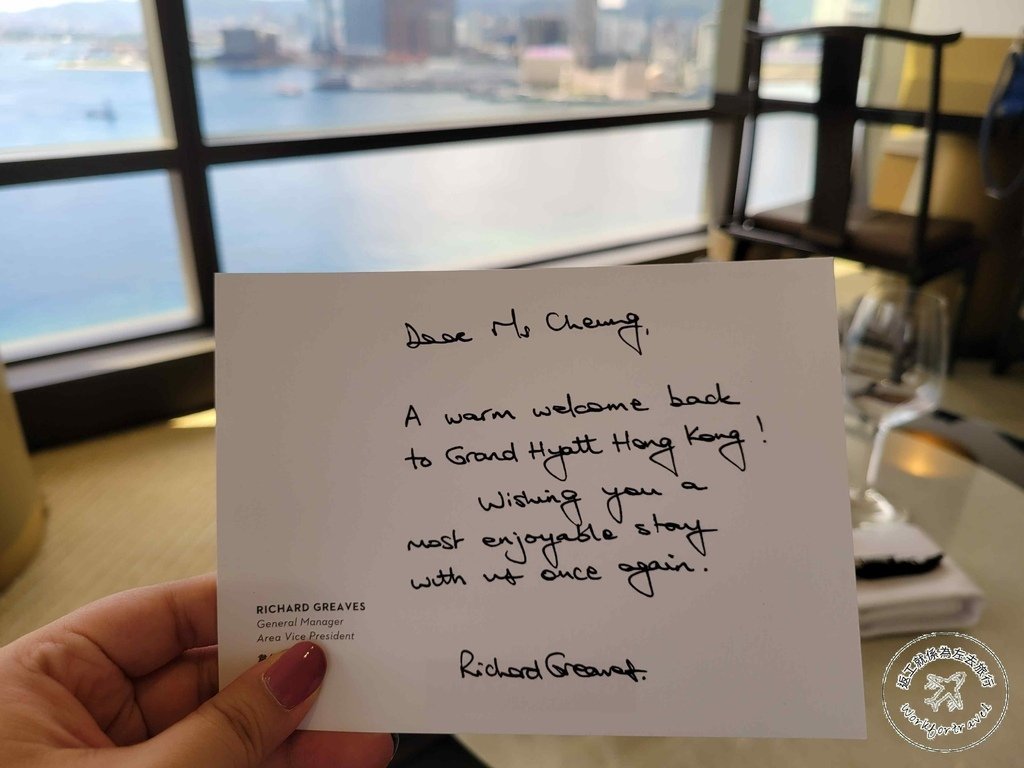 Dear Ms Cheung,
A warm welcome back
to Grand Hyatt Hong Kong!
Wishing you a
most enjoyable stay
with us once again.
RICHARD GREAVES
General Manager
Area Vice President
Richard Greaves.
返工就係為左去旅行
Workfortravel